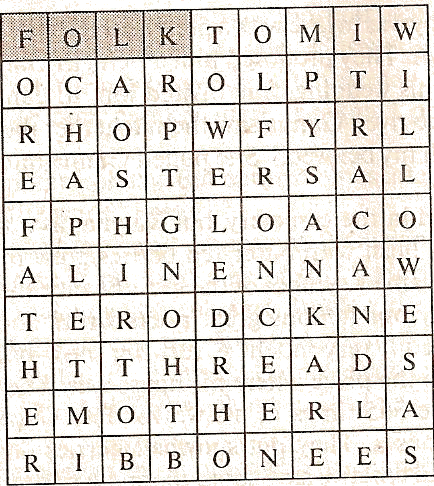 F O L K T O M I W
O C A R O L P T I
R H O P W F Y R L
E A S T E R S A L
F P H G L O A C O
A L I N E N N A W
T E R O D C K N E
H T T H R E A D S
E M O T H E R L A
R I B B O N E E S